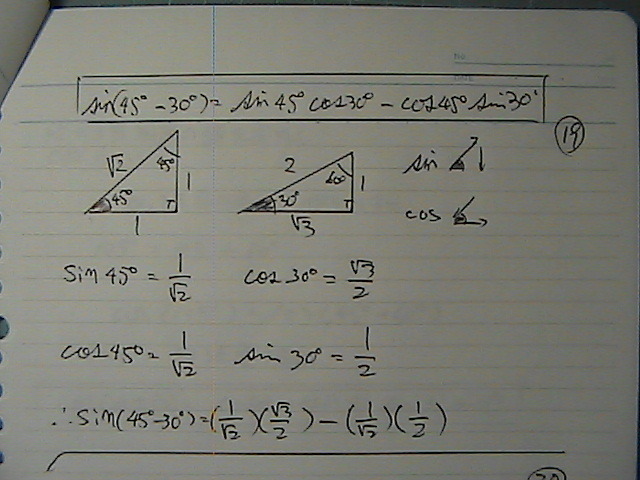 NO.
DATE
sin(45°-30°)= sin45°cos30° - cos45° sin30°
19
√2 45° 45° 1 1
2 60° 30° 1 √3
sin
cos
sin45° = 1/√2 cos30° = √3/2
cos45° = 1/√2 sin30° = 1/2
∴ sin(45°-30°)=(1/√2)(√3/2) - (1/√2)(1/2)